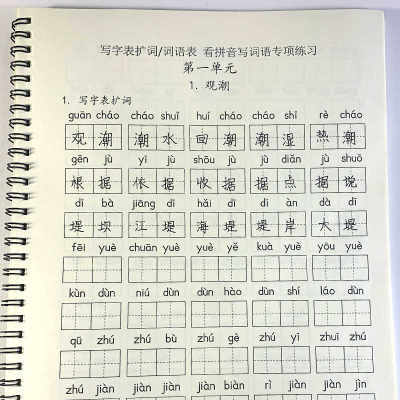 写字表扩词/词语表 看拼音写词语专项练习
第一单元
1. 观潮
1. 写字表扩词
guān cháo cháo shuǐ huí cháo cháo shī rè cháo
观潮 潮水 回潮 潮湿 热潮
gēn jù yī jù shōu jù jù diǎn jù shuō
根据 依据 收据 据点 据说
dī bà jiāng dī hǎi dī dī àn dà dī
堤坝 江堤 海堤 堤岸 大堤
fēi yuè chuān yuè yuè yě kuà yuè yōu yuè
kùn dùn niú dùn dùn hào dùn shí láo dùn
qū zhú zhú bù zhú gè zhú yī zhuī zhú
zhú jiàn jiàn jiàn jiàn biàn rì jiàn jiàn jìn